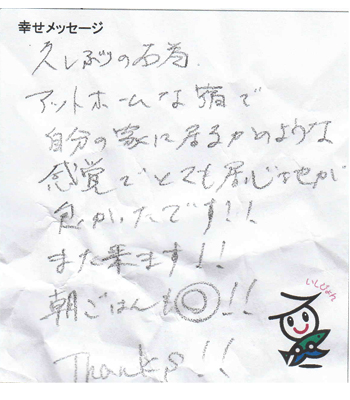 幸せメッセージ
久しぶりの石巻.
アットホームな宿で
自分の家に居るかのような
感覚でとても居心地が
良かったです!!
また来ます!!
朝ごはんも◎!!
Thanks!!
いしぴょん